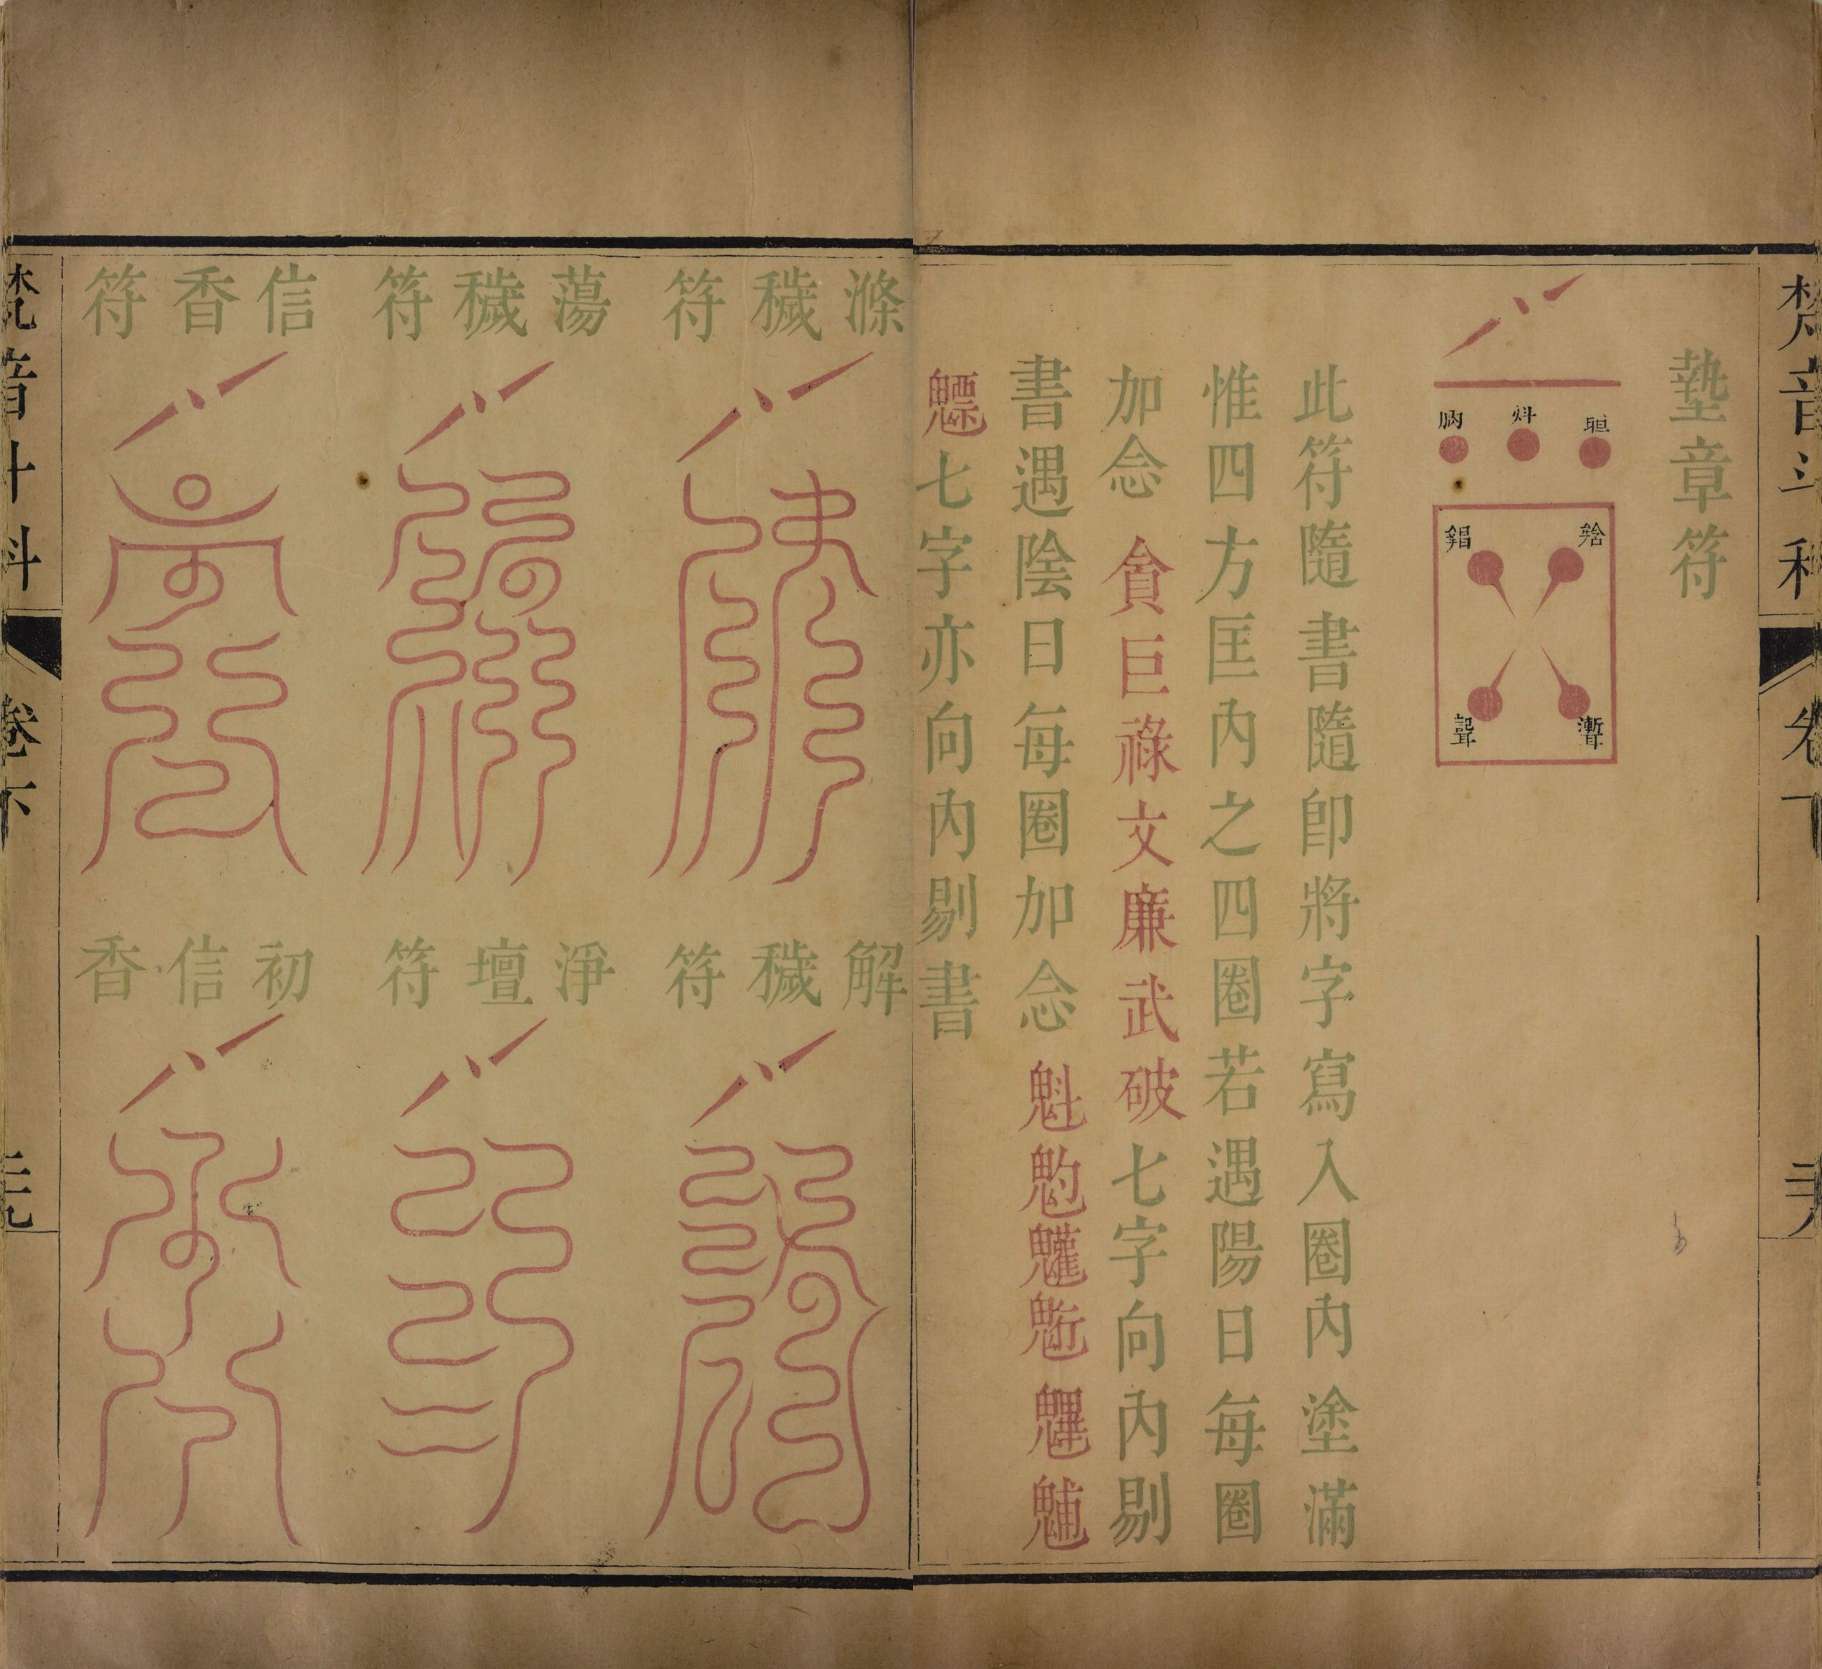 梵音斗科
卷下
墊章符
此符隨書隨卽將字寫入圈內塗滿
惟四方匡內之四圈若遇陽日每圈
加念貪巨祿文廉武破七字向內剔
書遇陰日每圈加念魁䰢魓
七字亦向內剔書
滌穢符
解穢符
蕩穢符
淨壇符
信香符
初信香
梵音斗科
卷下